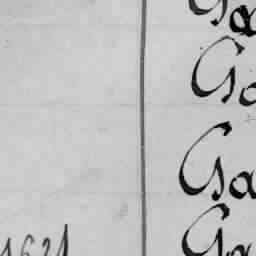 Ga
Ga
Ga
1621
Ga